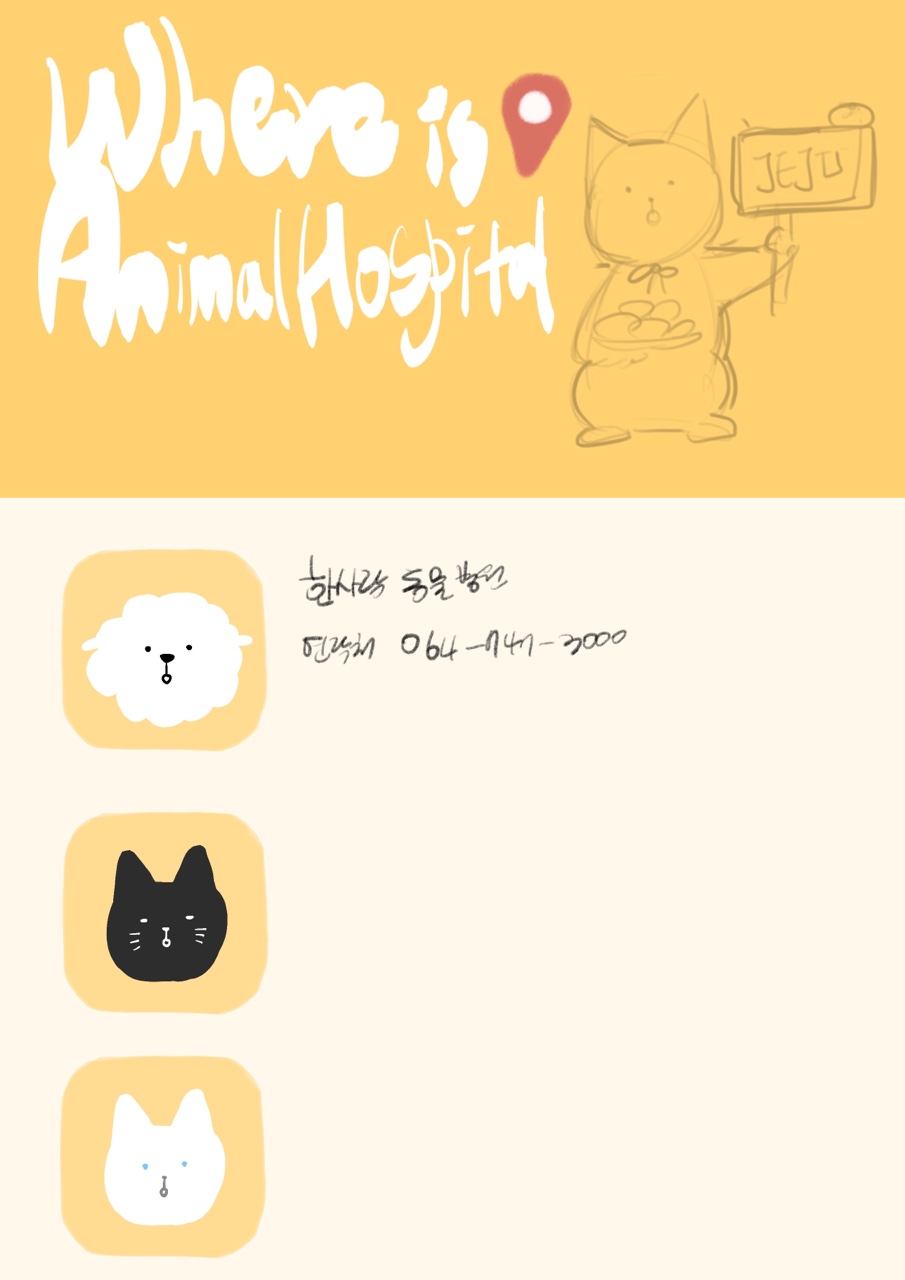 Where is
Animal Hospital
JEJU
한사랑 동물병원
연락처 064-747-3000